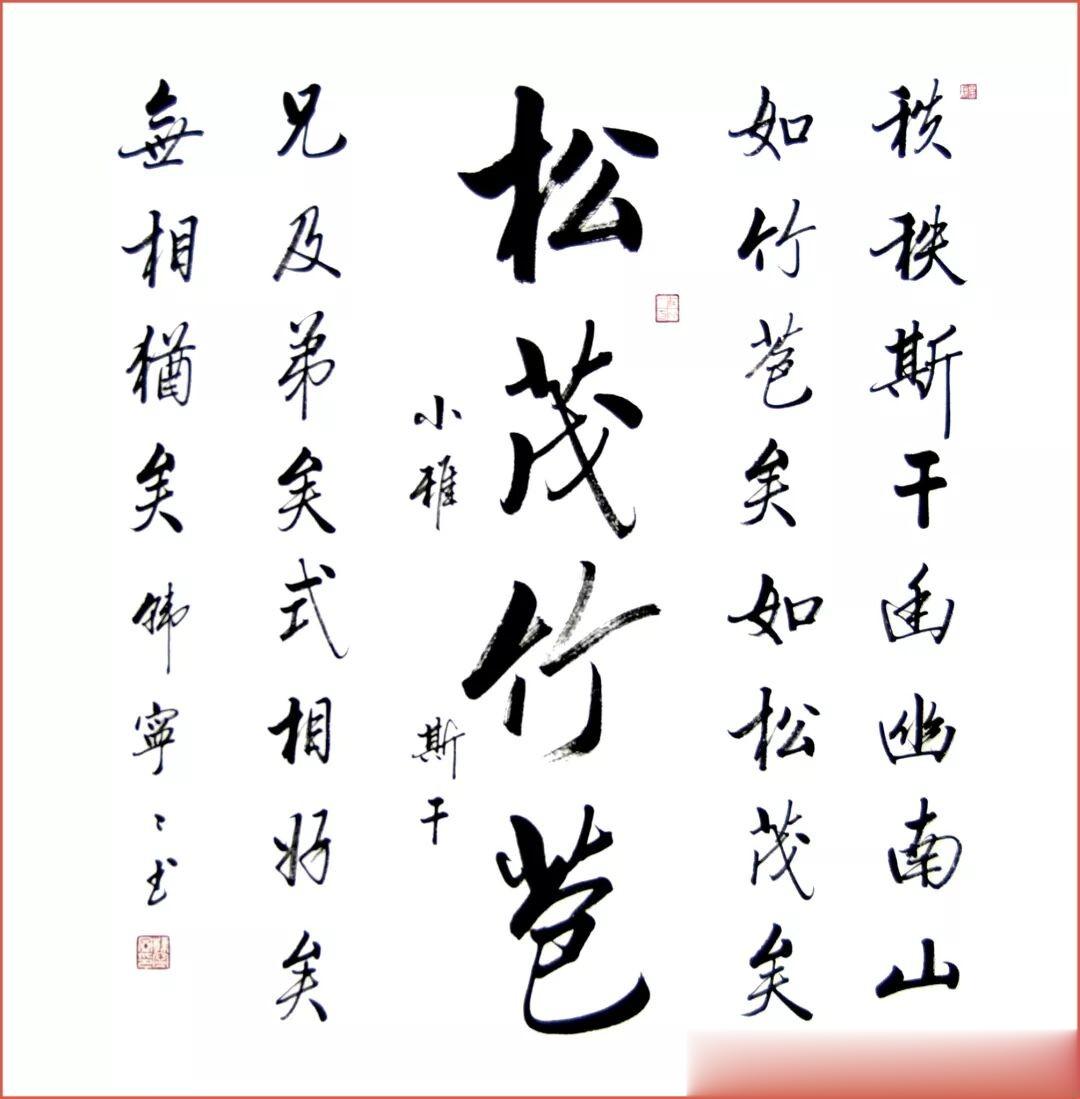 秩秩斯干幽幽南山
如竹苞矣如松茂矣
松茂竹苞
小雅 斯干
兄及弟矣式相好矣
無相猶矣 韩寧寧书